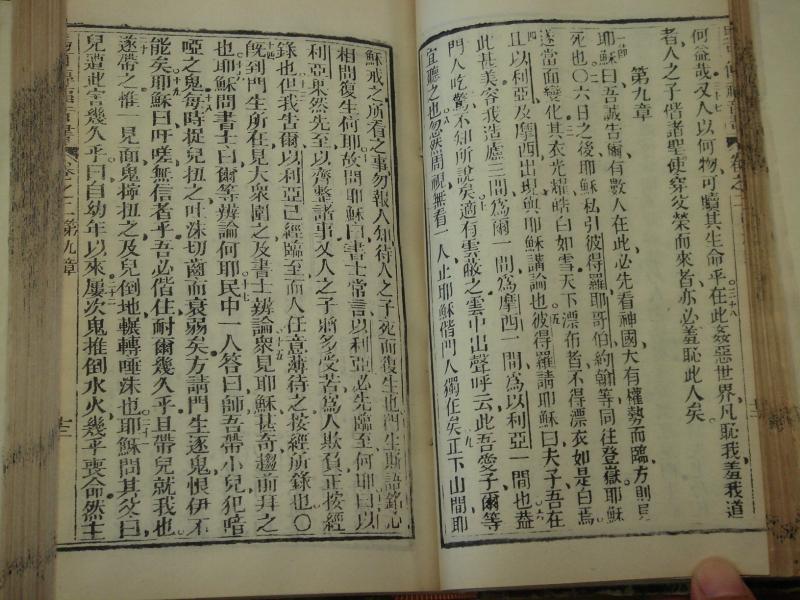 何益哉又人以何物可贖其生命乎在此姦惡世界凡恥我羞我道
者人之子偕諸聖使穿父榮而來者亦必羞恥此人矣
第九章
耶穌曰吾誠告爾有數人在此必先看神國大有權勢而臨方則見
死也〇六日之後耶穌私引彼得羅耶哥伯約翰等同往登嶽耶穌
遂當面變化其衣光耀皓白如雪天下漂布者不得漂衣如是白焉
且以利亞及摩西出現與耶穌講論也彼得羅請耶穌曰夫子吾在
此甚美容我造處三間為爾一間為摩西一間為以利亞一間也蓋
門人吃驚不知所說矣適有雲蔽之雲中出聲呼云此吾愛子爾等
宜聽之也忽然周視無看一人止耶穌偕門人獨在矣正下山間耶
穌戒之所看之事勿報人知待人之子死而復生也門生斯語銘心
相問復生何耶故問耶穌曰書士常言以利亞必先臨至何耶曰以
利亞果然先至以齊整諸事又人之子將多受苦為人欺負正按經
錄也但我告爾以利亞已經臨至而人任意薄待之按經所錄也〇
既到門生所在見大眾圍之及書士辨論眾見耶穌甚奇趨前拜之
也耶穌問書士曰爾等辨論何耶民中一人答曰師吾帶小兒犯暗
啞之鬼每時捉兒扭之吐沫切齒而衰弱矣方請門生逐鬼恨伊不
能矣耶穌曰吁嗟無信者乎吾必偕住耐爾幾久乎且帶兒就我也
遂帶之惟一見面鬼擰扭之及兒倒地輾轉唾沫也耶穌問其父曰
兒遭此害幾久乎曰自幼年以來屢次鬼推倒水火幾乎喪命然主
卷之二第九章